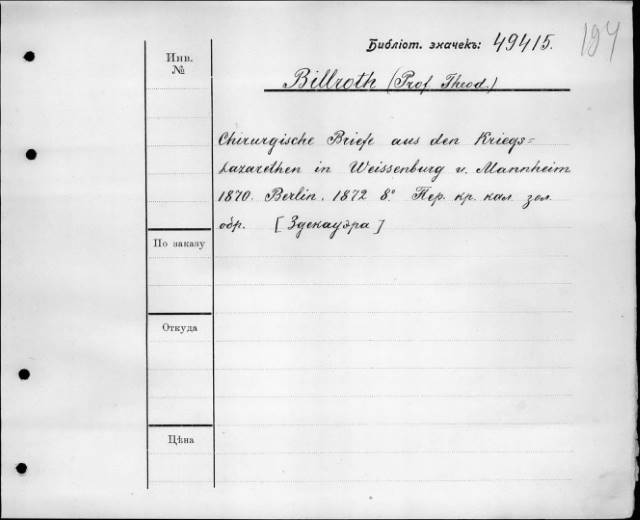 Библіот. значекъ: 49415.
194
Инв.
№
Billroth (Prof. Theod.)
Chirurgische Briefe aus den Kriegs=
Lazarethen in Weissenburg u. Mannheim
1870. Berlin. 1872 8º. Пер. кр. кал. зол.
обр. [Здекауэра]
По заказу
Откуда
Цѣна